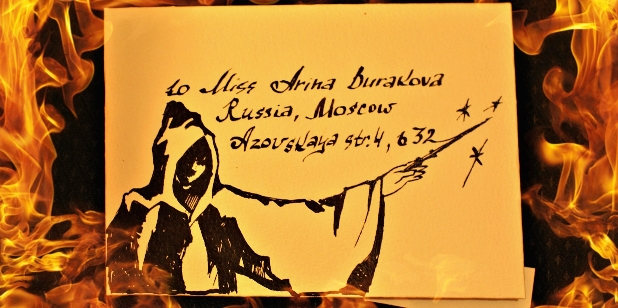 to Miss Arina Burakova
Russia, Moscow
Azovskaya str. 4, 632